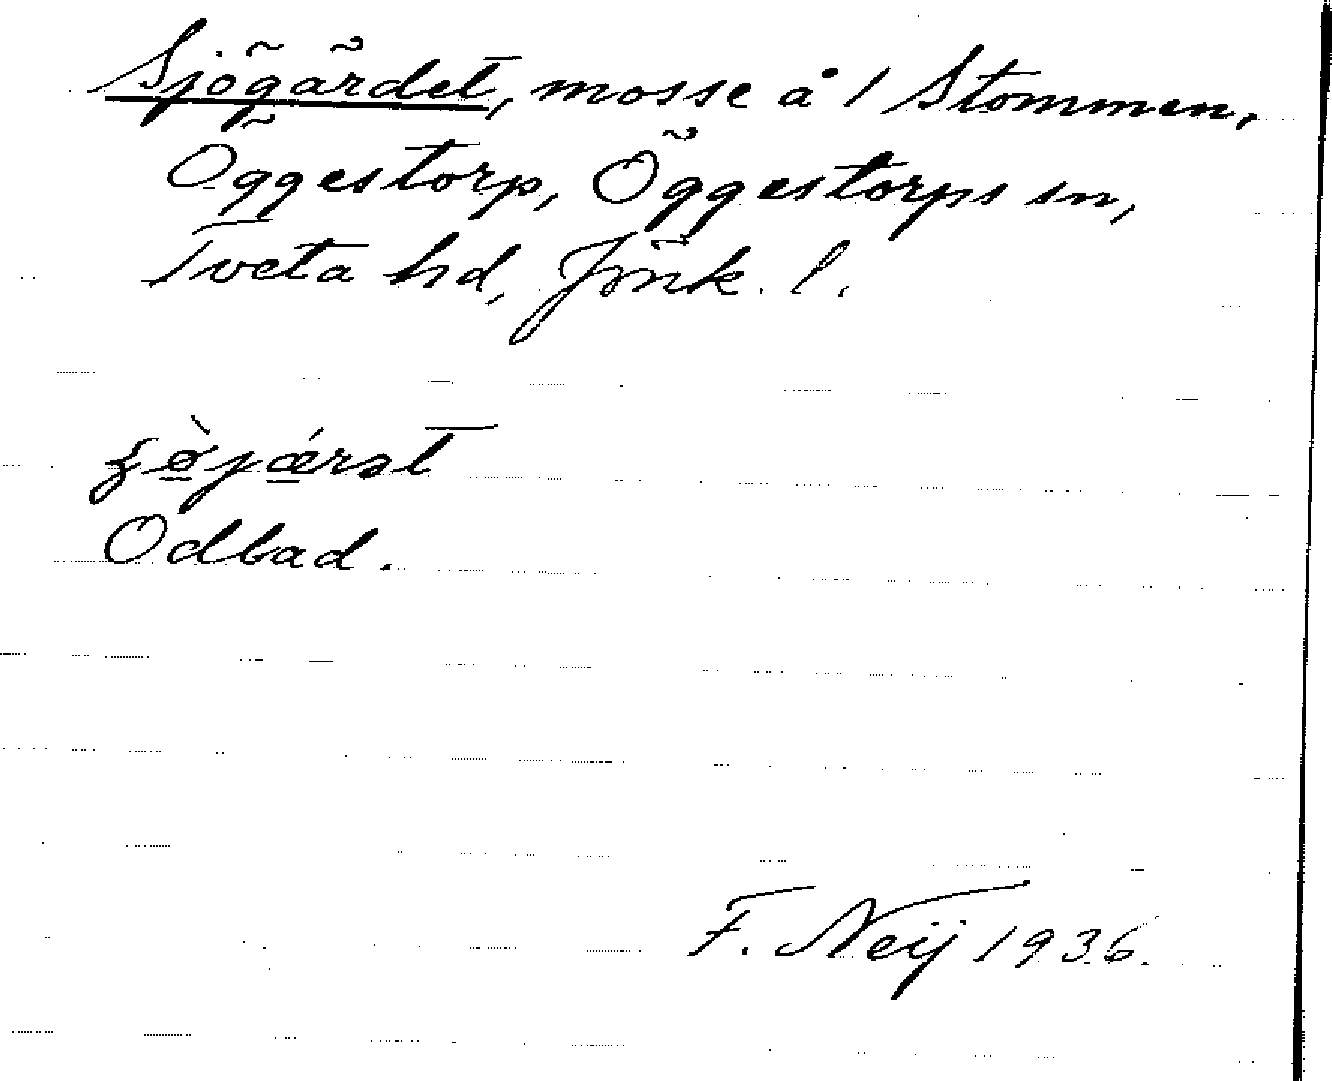 Sjögärdet, mosse å 1 Stommen,
Öggestorp, Öggestorps sn,
Tveta hd, Jönk. l.
Odbad.
F. Neij 1936.